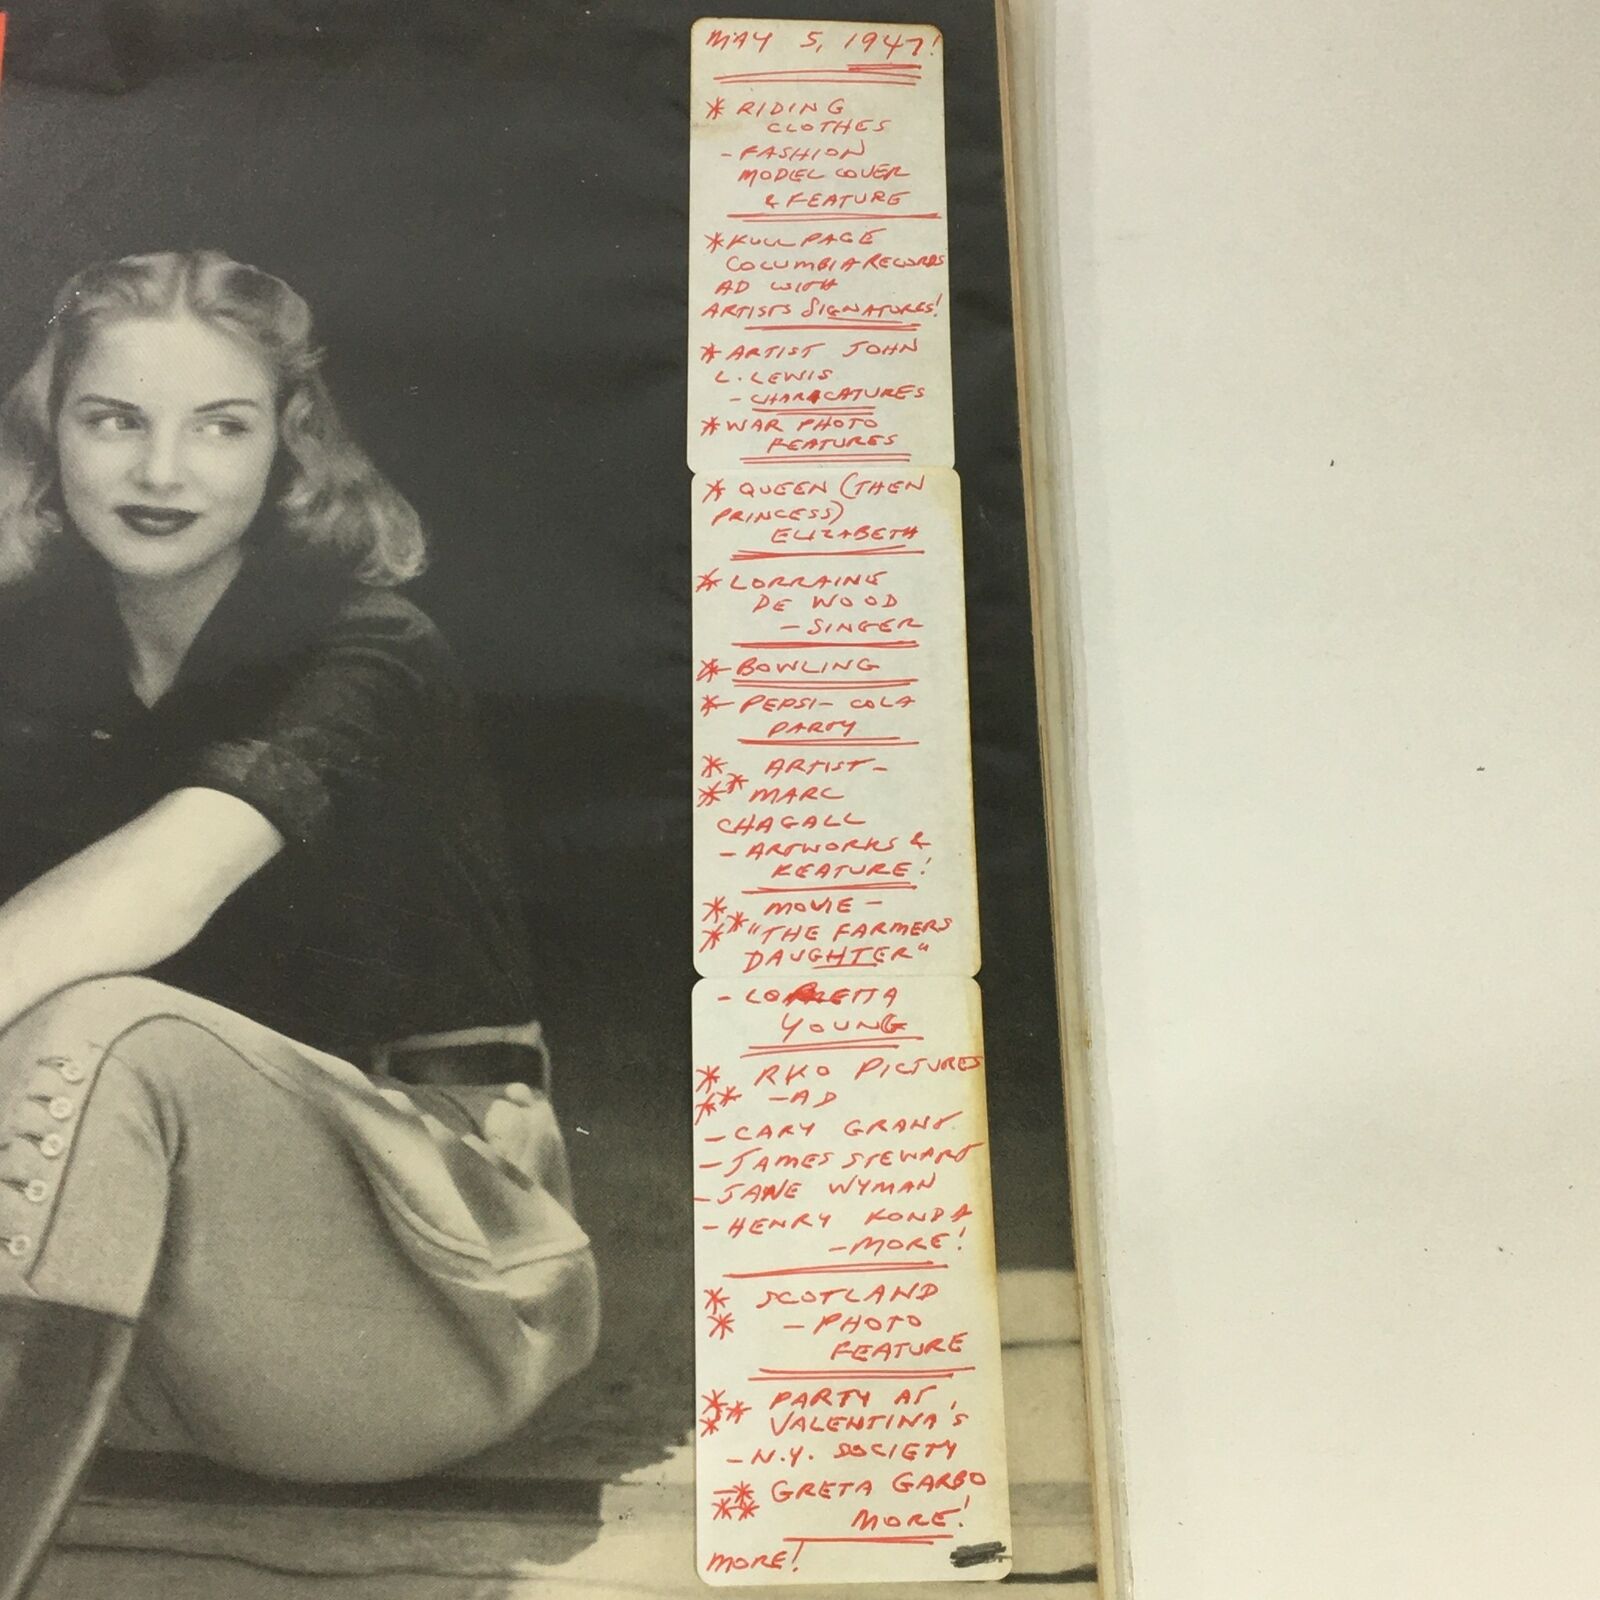 MAY 5, 1947!
* RIDING
CLOTHES
- FASHION
MODEL COVER
& FEATURE
* FULL PAGE
COLUMBIA RECORDS
AD WITH
ARTISTS SIGNATURES!
* ARTIST JOHN
L. LEWIS
- CHARACATURES
* WAR PHOTO
FEATURES
* QUEEN (THEN
PRINCESS)
ELIZABETH
* LORRAINE
DE WOOD
- SINGER
* BOWLING
* PEPSI-COLA
PARTY
* ARTIST -
* * MARC
CHAGALL
- ARTWORKS &
FEATURE!
* MOVIE -
* * "THE FARMERS
DAUGHTER"
- LORETTA
YOUNG
* RKO PICTURES
** - AD
- CARY GRANT
- JAMES STEWART
- JANE WYMAN
- HENRY FONDA
- MORE!
* SCOTLAND
* - PHOTO
FEATURE
* * PARTY AT
* VALENTINA'S
- N.Y. SOCIETY
- * GRETA GARBO
** MORE!
MORE!